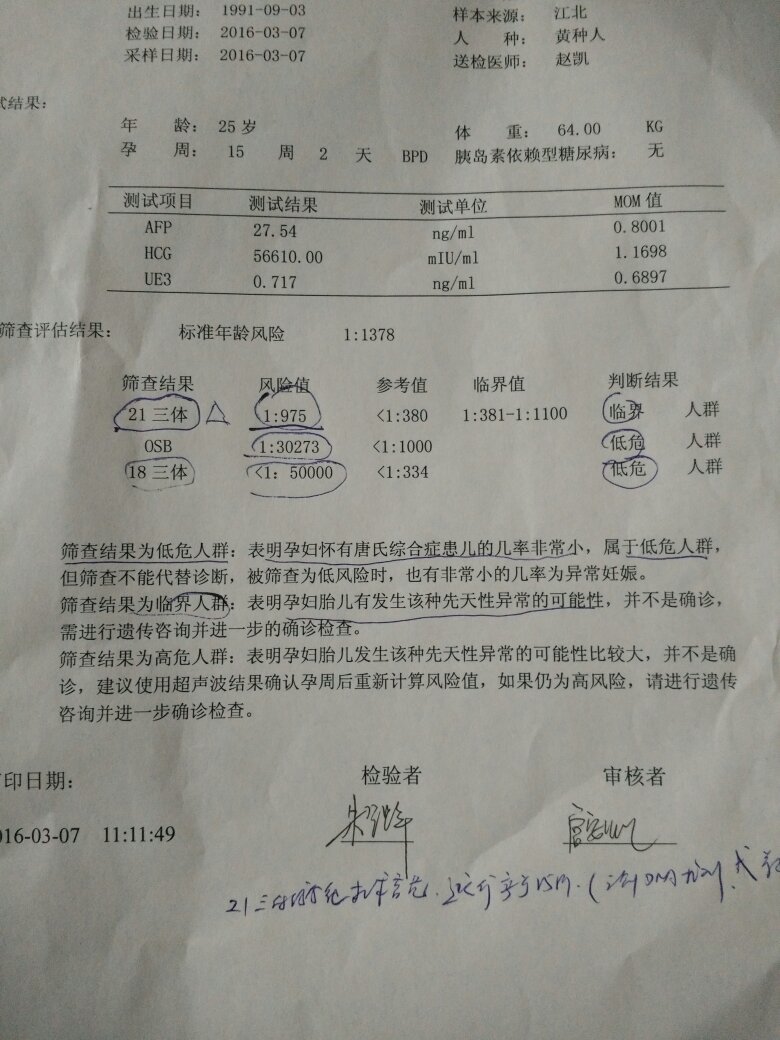 出生日期： 1991-09-03 样本来源： 江北
检验日期： 2016-03-07 人 种： 黄种人
采样日期： 2016-03-07 送检医师： 赵凯
试结果：
年 龄： 25 岁 体 重： 64.00 KG
孕 周： 15 周 2 天 BPD 胰岛素依赖型糖尿病： 无
测试项目 测试结果 测试单位 MOM 值
AFP 27.54 ng/ml 0.8001
HCG 56610.00 mIU/ml 1.1698
UE3 0.717 ng/ml 0.6897
筛查评估结果： 标准年龄风险 1:1378
筛查结果 风险值 参考值 临界值 判断结果
21 三体 1:975 <1:380 1:381-1:1100 临界 人群
OSB 1:30273 <1:1000 低危 人群
18 三体 <1: 50000 <1:334 低危 人群
筛查结果为低危人群：表明孕妇怀有唐氏综合症患儿的几率非常小，属于低危人群，
但筛查不能代替诊断，被筛查为低风险时，也有非常小的几率为异常妊娠。
筛查结果为临界人群：表明孕妇胎儿有发生该种先天性异常的可能性，并不是确诊，
需进行遗传咨询并进一步的确诊检查。
筛查结果为高危人群：表明孕妇胎儿发生该种先天性异常的可能性比较大，并不是确
诊，建议使用超声波结果确认孕周后重新计算风险值，如果仍为高风险，请进行遗传
咨询并进一步确诊检查。
印日期： 检验者 审核者
016-03-07 11:11:49
21三体